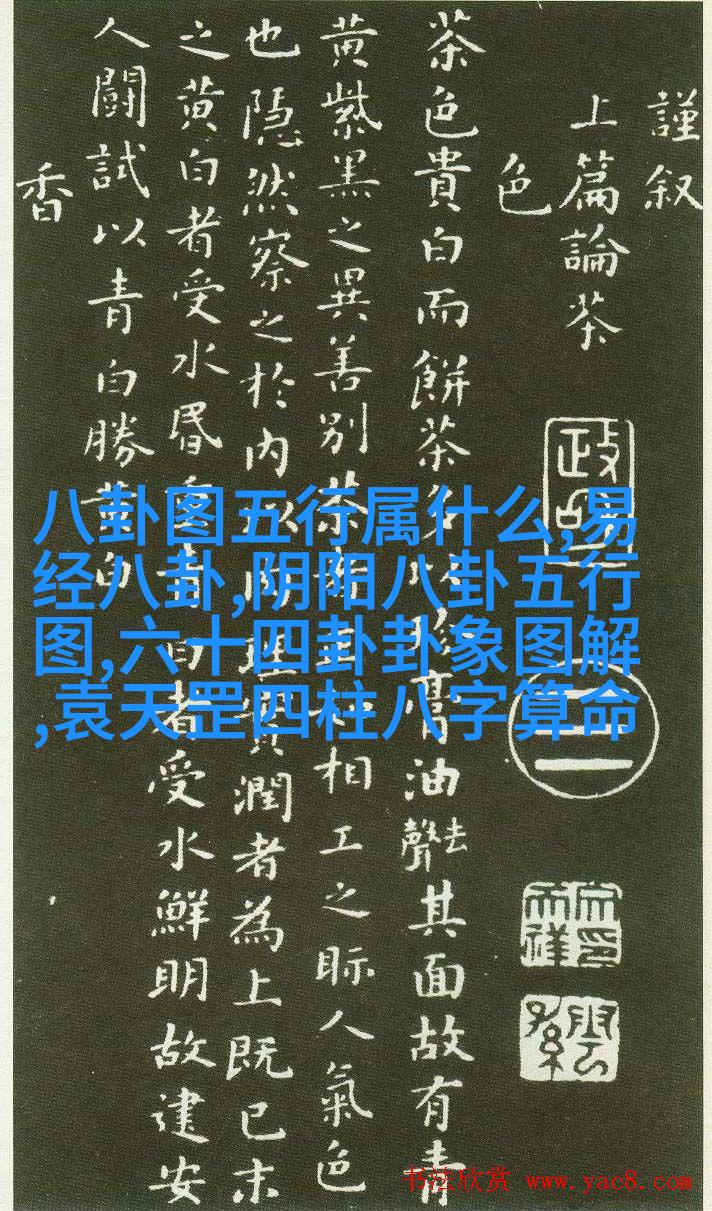 謹叙
上篇論茶
色
茶色貴白而餅茶多以珍膏油去聲其面故有青
黄紫黑之異善别茶者正如相工之眎人氣色
也隠然察之於内以肉理實潤者為上既已末
之黄白者受水昬重青白者受水鮮明故建安
人鬪試以青白勝黄白
香
政和
八卦图五行属什么,易
经八卦,阴阳八卦五行
图,六十四卦卦象图解
,袁天罡四柱八字算命
书法欣赏 www.yac8.com